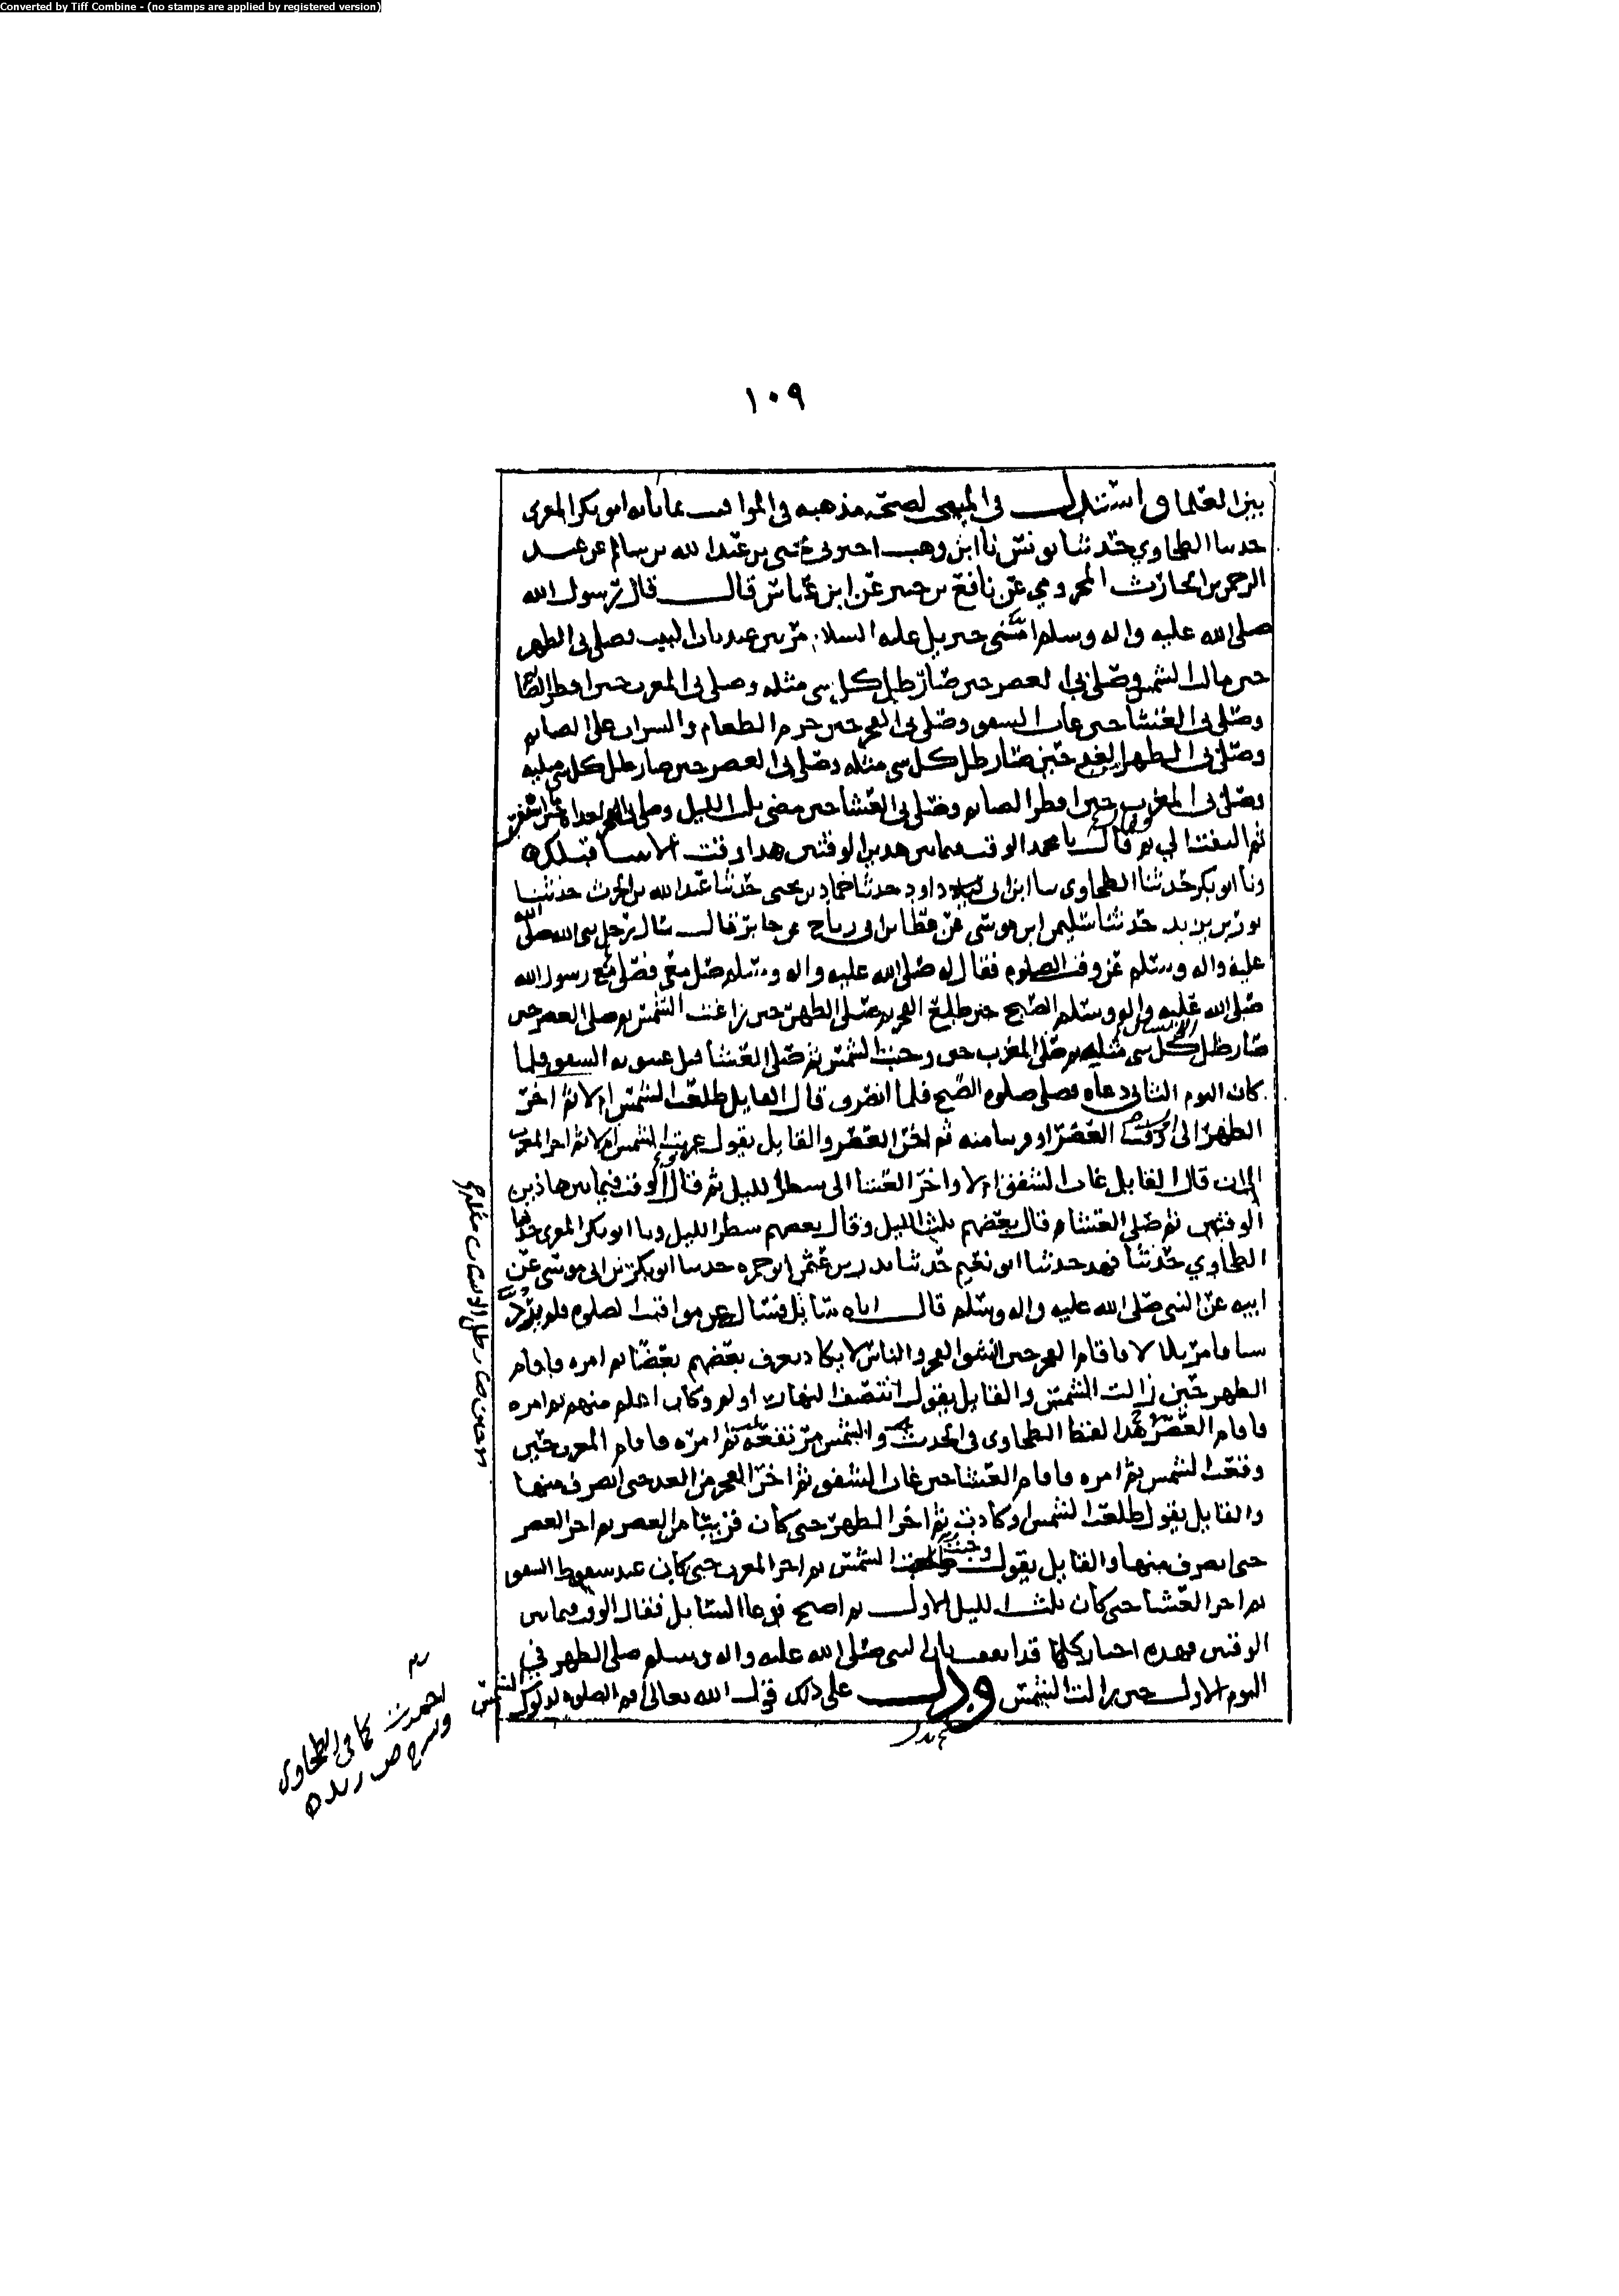 Converted by Tiff Combine - (no stamps are applied by registered version)
١٠٩
بين العلما واستدل في لصحة مذهبه في المواقيت بما نا به ابو بكر المقري
حدثنا الطحاوي حدثنا يونس نا ابن وهب اخبرني يحيى بن عبد الله بن سالم عن عبد
الرحمن بن الحارث المخزومي عن نافع بن جبير عن ابن عباس قال قال رسول الله
صلى الله عليه واله وسلم امني جبريل عليه السلام مرتين عند باب البيت فصلى بي الظهر
حين مالت الشمس وصلى بي العصر حين صار ظل كل شي مثله وصلى بي المغرب حين افطر الصائم
وصلى بي العشا حين غاب الشفق وصلى بي الفجر حين حرم الطعام والشراب على الصايم
وصلى بي الظهر الغد حين صار ظل كل شي مثله وصلى بي العصر حين صار ظل كل شي مثليه
وصلى بي المغرب حين افطر الصايم وصلى بي العشا حين مضى ثلث الليل وصلى بي الغداة
ثم التفت الي ثم قال يا محمد الوقت فيما بين هذين الوقتين هذا وقت الانبيا قبلك
ونا ابو بكر حدثنا الطحاوي نا ابن ابي داود حدثنا حماد بن يحيى حدثنا عبد الله بن الحرث حدثنا
ثور بن يزيد حدثنا سليمن ابن موسى عن عطا بن ابي رباح عن جابر قال سال رجل نبي الله صلى الله
عليه واله وسلم عن وقت الصلوة فقال له صلى الله عليه واله وسلم صل معي فصلى مع رسول الله
صلى الله عليه واله وسلم الصبح حين طلع الفجر ثم صلى الظهر حين زاغت الشمس ثم صلى العصر حين
صار ظل كل شي مثليه ثم صلى المغرب حين وجبت الشمس ثم صلى العشا قبل غيبوبة الشفق فلما
كان اليوم الثاني دعاه فصلى صلوة الصبح فلما انصرف قال القايل طلعت الشمس ام لا ثم اخر
الظهر الى وقت العصر او قريبا منه ثم اخر العصر والقايل يقول غربت الشمس ام لا ثم اخر المغرب
الى ان قال القايل غاب الشفق ام لا واخر العشا الى شطر الليل ثم قال الوقت فيما بين هاذين
الوقتين ثم صلى العشا قال بعضهم ثلث الليل وقال بعضهم شطر الليل ونا ابو بكر المقري حدثنا
الطحاوي حدثنا فهد حدثنا ابو نعيم حدثنا بدر بن عثمن حدثنا ابو بكر بن ابي موسى عن
ابيه عن النبي صلى الله عليه واله وسلم قال اتاه سايل فسال عن مواقيت الصلوة فلم يرد
شيا فامر بلالا فاقام الفجر حين انشق الفجر والناس لا يكاد يعرف بعضهم بعضا ثم امره فاقام
الظهر حين زالت الشمس والقايل يقول انتصف النهار او لم وكان اعلم منهم ثم امره
فاقام العصر هذا لفظ الطحاوي في الحديث والشمس مرتفعة ثم امره فاقام المغرب حين
وقعت الشمس ثم امره فاقام العشا حين غاب الشفق ثم اخر الفجر من الغد حتى انصرف منها
والقايل يقول طلعت الشمس او كادت ثم اخر الظهر حتى كان قريبا من العصر ثم اخر العصر
حتى انصرف منها والقايل يقول الشمس ثم اخر المغرب حتى كان عند سقوط الشفق
ثم اخر العشا حتى كان ثلث الليل الاول ثم اصبح فدعا السايل فقال الوقت فيما بين
الوقتين فهذه اخبار كلها قد بان النبي صلى الله عليه واله وسلم صلى الظهر في
اليوم الاول حين زالت الشمس ودل على ذلك قول الله تعالى اقم الصلوة لدلوك الشمس